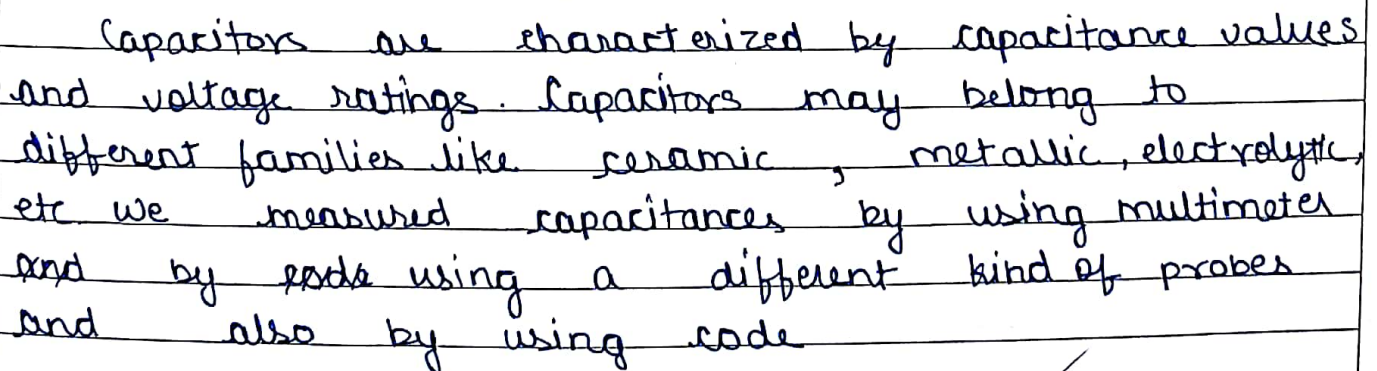 Capacitors are characterized by capacitance values
and voltage ratings. Capacitors may belong to
different families like ceramic, metallic, electrolytic,
etc we measured capacitances by using multimeter
and by code using a different kind of probes
and also by using code